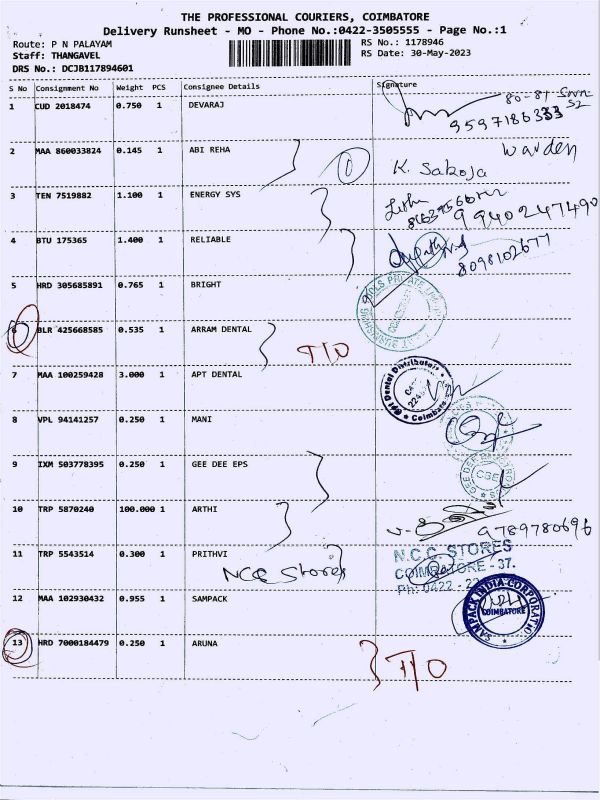 THE PROFESSIONAL COURIERS, COIMBATORE
Delivery Runsheet - MO - Phone No.:0422-3505555 - Page No.:1
Route: P N PALAYAM
RS No.: 1178946
Staff: THANGAVEL
RS Date: 30-May-2023
DRS No.: DCJB117894601
S No Consignment No Weight PCS Consignee Details Signature
1 CUD 2018474 0.750 1 DEVARAJ
80-81-
9597186333
2 MAA 860033824 0.145 1 ABI REHA
Warden
K. Sakoja
3 TEN 7519882 1.100 1 ENERGY SYS
9940247490
4 BTU 175365 1.400 1 RELIABLE
8098102677
5 HRD 305685891 0.765 1 BRIGHT
6 BLR 425668585 0.535 1 ARRAM DENTAL
T/O
7 MAA 100259428 3.000 1 APT DENTAL
Dental Distributors
Coimbatore
8 VPL 94141257 0.250 1 MANI
9 IXM 503778395 0.250 1 GEE DEE EPS
CBE
10 TRP 5870240 100.000 1 ARTHI
9789780696
11 TRP 5543514 0.300 1 PRITHVI
NCC Stores
N.C.C. STORES
COIMBATORE - 37.
Ph: 0422 - 22
12 MAA 102930432 0.955 1 SAMPACK
SAMPACK INDIA CORPORATIO
COIMBATORE
13 HRD 7000184479 0.250 1 ARUNA
T/O